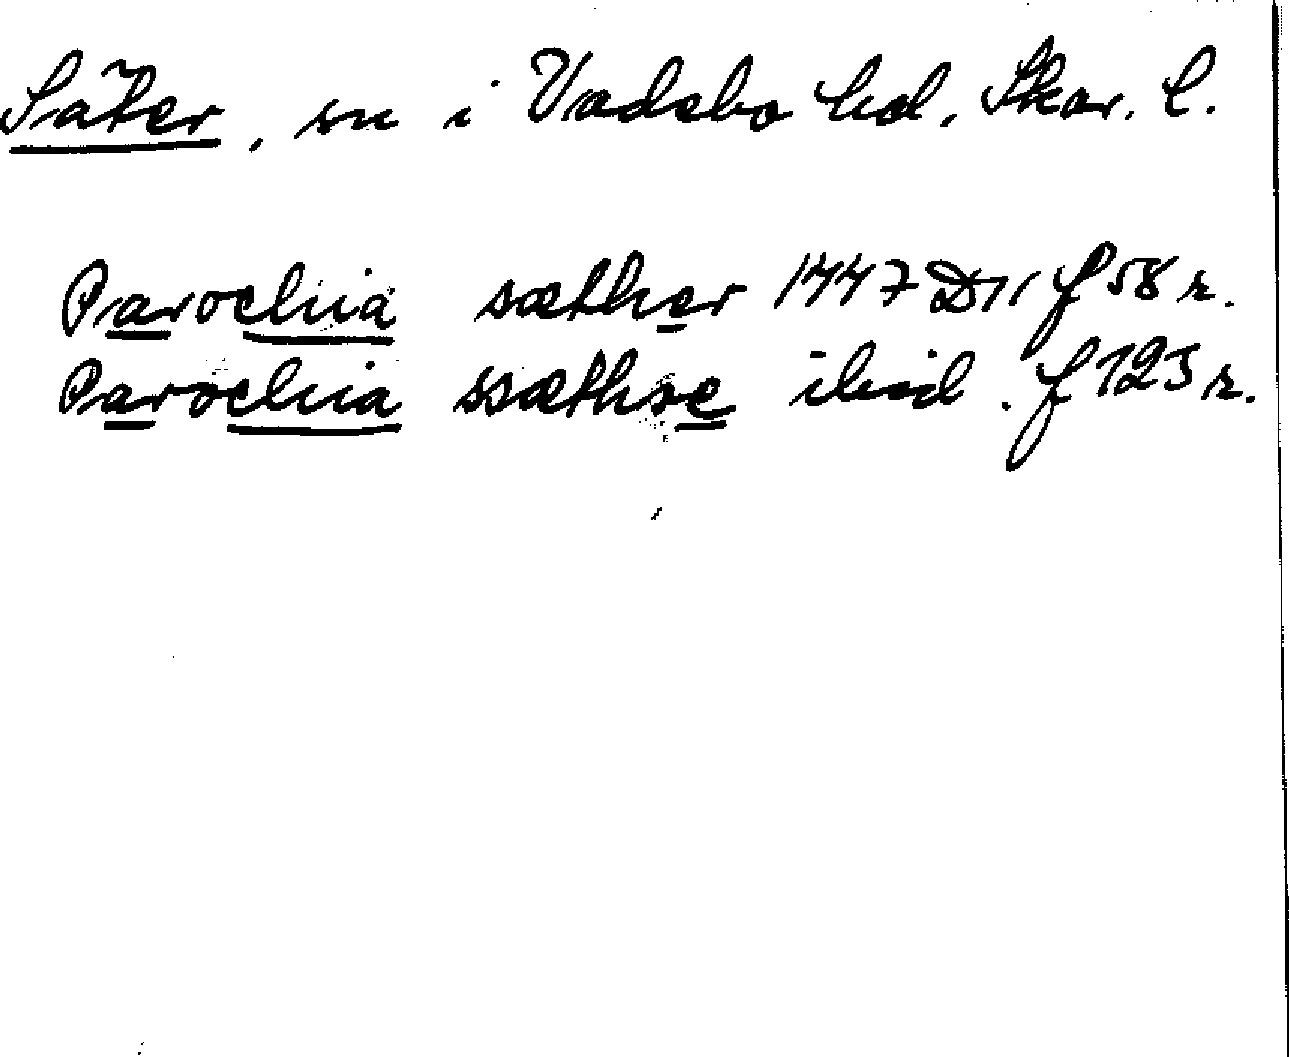 Säter, sn i Vadsbo hd, Skar. l.
Parochia sæther 1447 D11 f 58 r.
Parochia ssæthræ ibid. f 123 r.